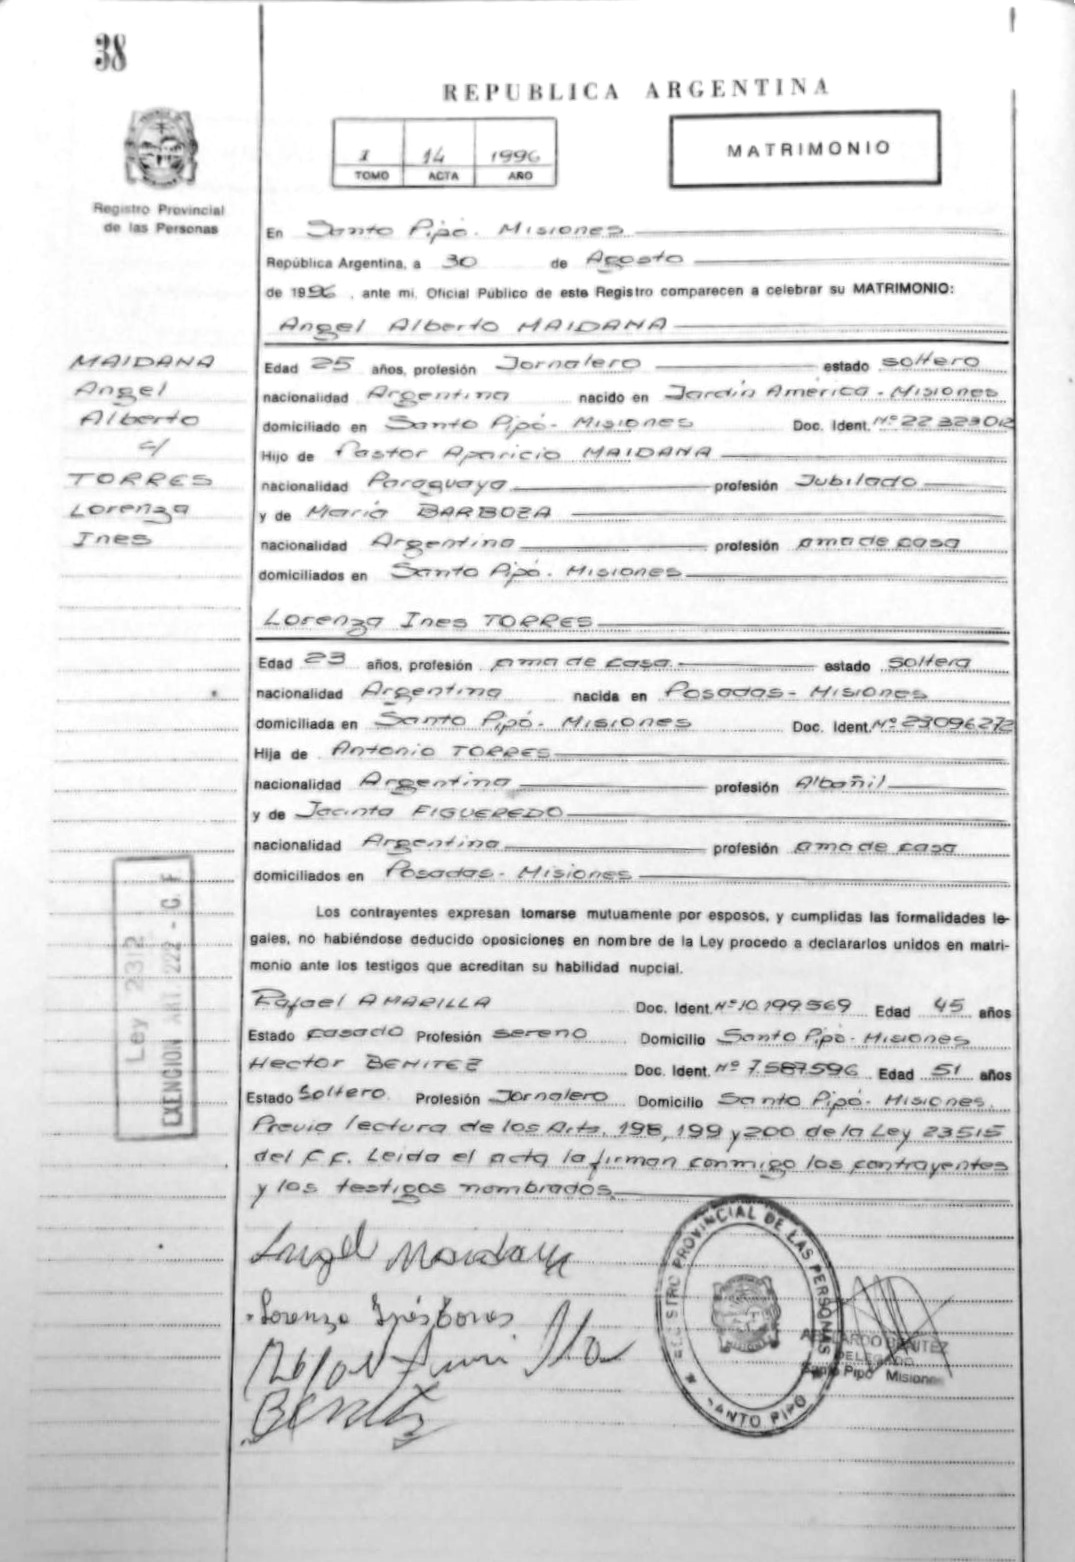 38
REPUBLICA ARGENTINA
1 14 1996
TOMO ACTA AÑO
MATRIMONIO
Registro Provincial
de las Personas
En Santo Pipó. Misiones
República Argentina, a 30 de Agosto
de 1996, ante mi, Oficial Público de este Registro comparecen a celebrar su MATRIMONIO:
Angel Alberto MAIDANA
MAIDANA
Angel
Alberto
c/
TORRES
Lorenza
Ines
Edad 25 años, profesión Jornalero estado soltero
nacionalidad Argentina nacido en Jardín América - Misiones
domiciliado en Santo Pipó - Misiones Doc. Ident. Nº 22323012
Hijo de Pastor Aparicio MAIDANA
nacionalidad Paraguaya profesión Jubilado
y de María BARBOZA
nacionalidad Argentina profesión ama de casa
domiciliados en Santo Pipó. Misiones
Lorenza Ines TORRES
Edad 23 años, profesión ama de casa. estado soltera
nacionalidad Argentina nacida en Posadas - Misiones
domiciliada en Santo Pipó - Misiones Doc. Ident. Nº 23096272
Hija de Antonio TORRES
nacionalidad Argentina profesión Albañil
y de Jacinta FIGUEREDO
nacionalidad Argentina profesión ama de casa
domiciliados en Posadas - Misiones
Ley 2312
EXENCION ART. 222 - C. F
Los contrayentes expresan tomarse mutuamente por esposos, y cumplidas las formalidades le-
gales, no habiéndose deducido oposiciones en nombre de la Ley procedo a declararlos unidos en matri-
monio ante los testigos que acreditan su habilidad nupcial.
Rafael AMARILLA Doc. Ident. Nº 10.199.569 Edad 45 años
Estado casado Profesión sereno Domicilio Santo Pipó - Misiones
Hector BENITEZ Doc. Ident. Nº 7.587.596 Edad 51 años
Estado Soltero. Profesión Jornalero Domicilio Santo Pipó. Misiones.
Previa lectura de los Arts. 198, 199 y 200 de la Ley 23515
del C.C. Leida el acta la firman conmigo los contrayentes
y los testigos nombrados.
Angel Maidana
Lorenza Inés Torres
Benitez
REGISTRO PROVINCIAL DE LAS PERSONAS
SANTO PIPÓ
BENITEZ
DELEGADO
Santo Pipó Misiones